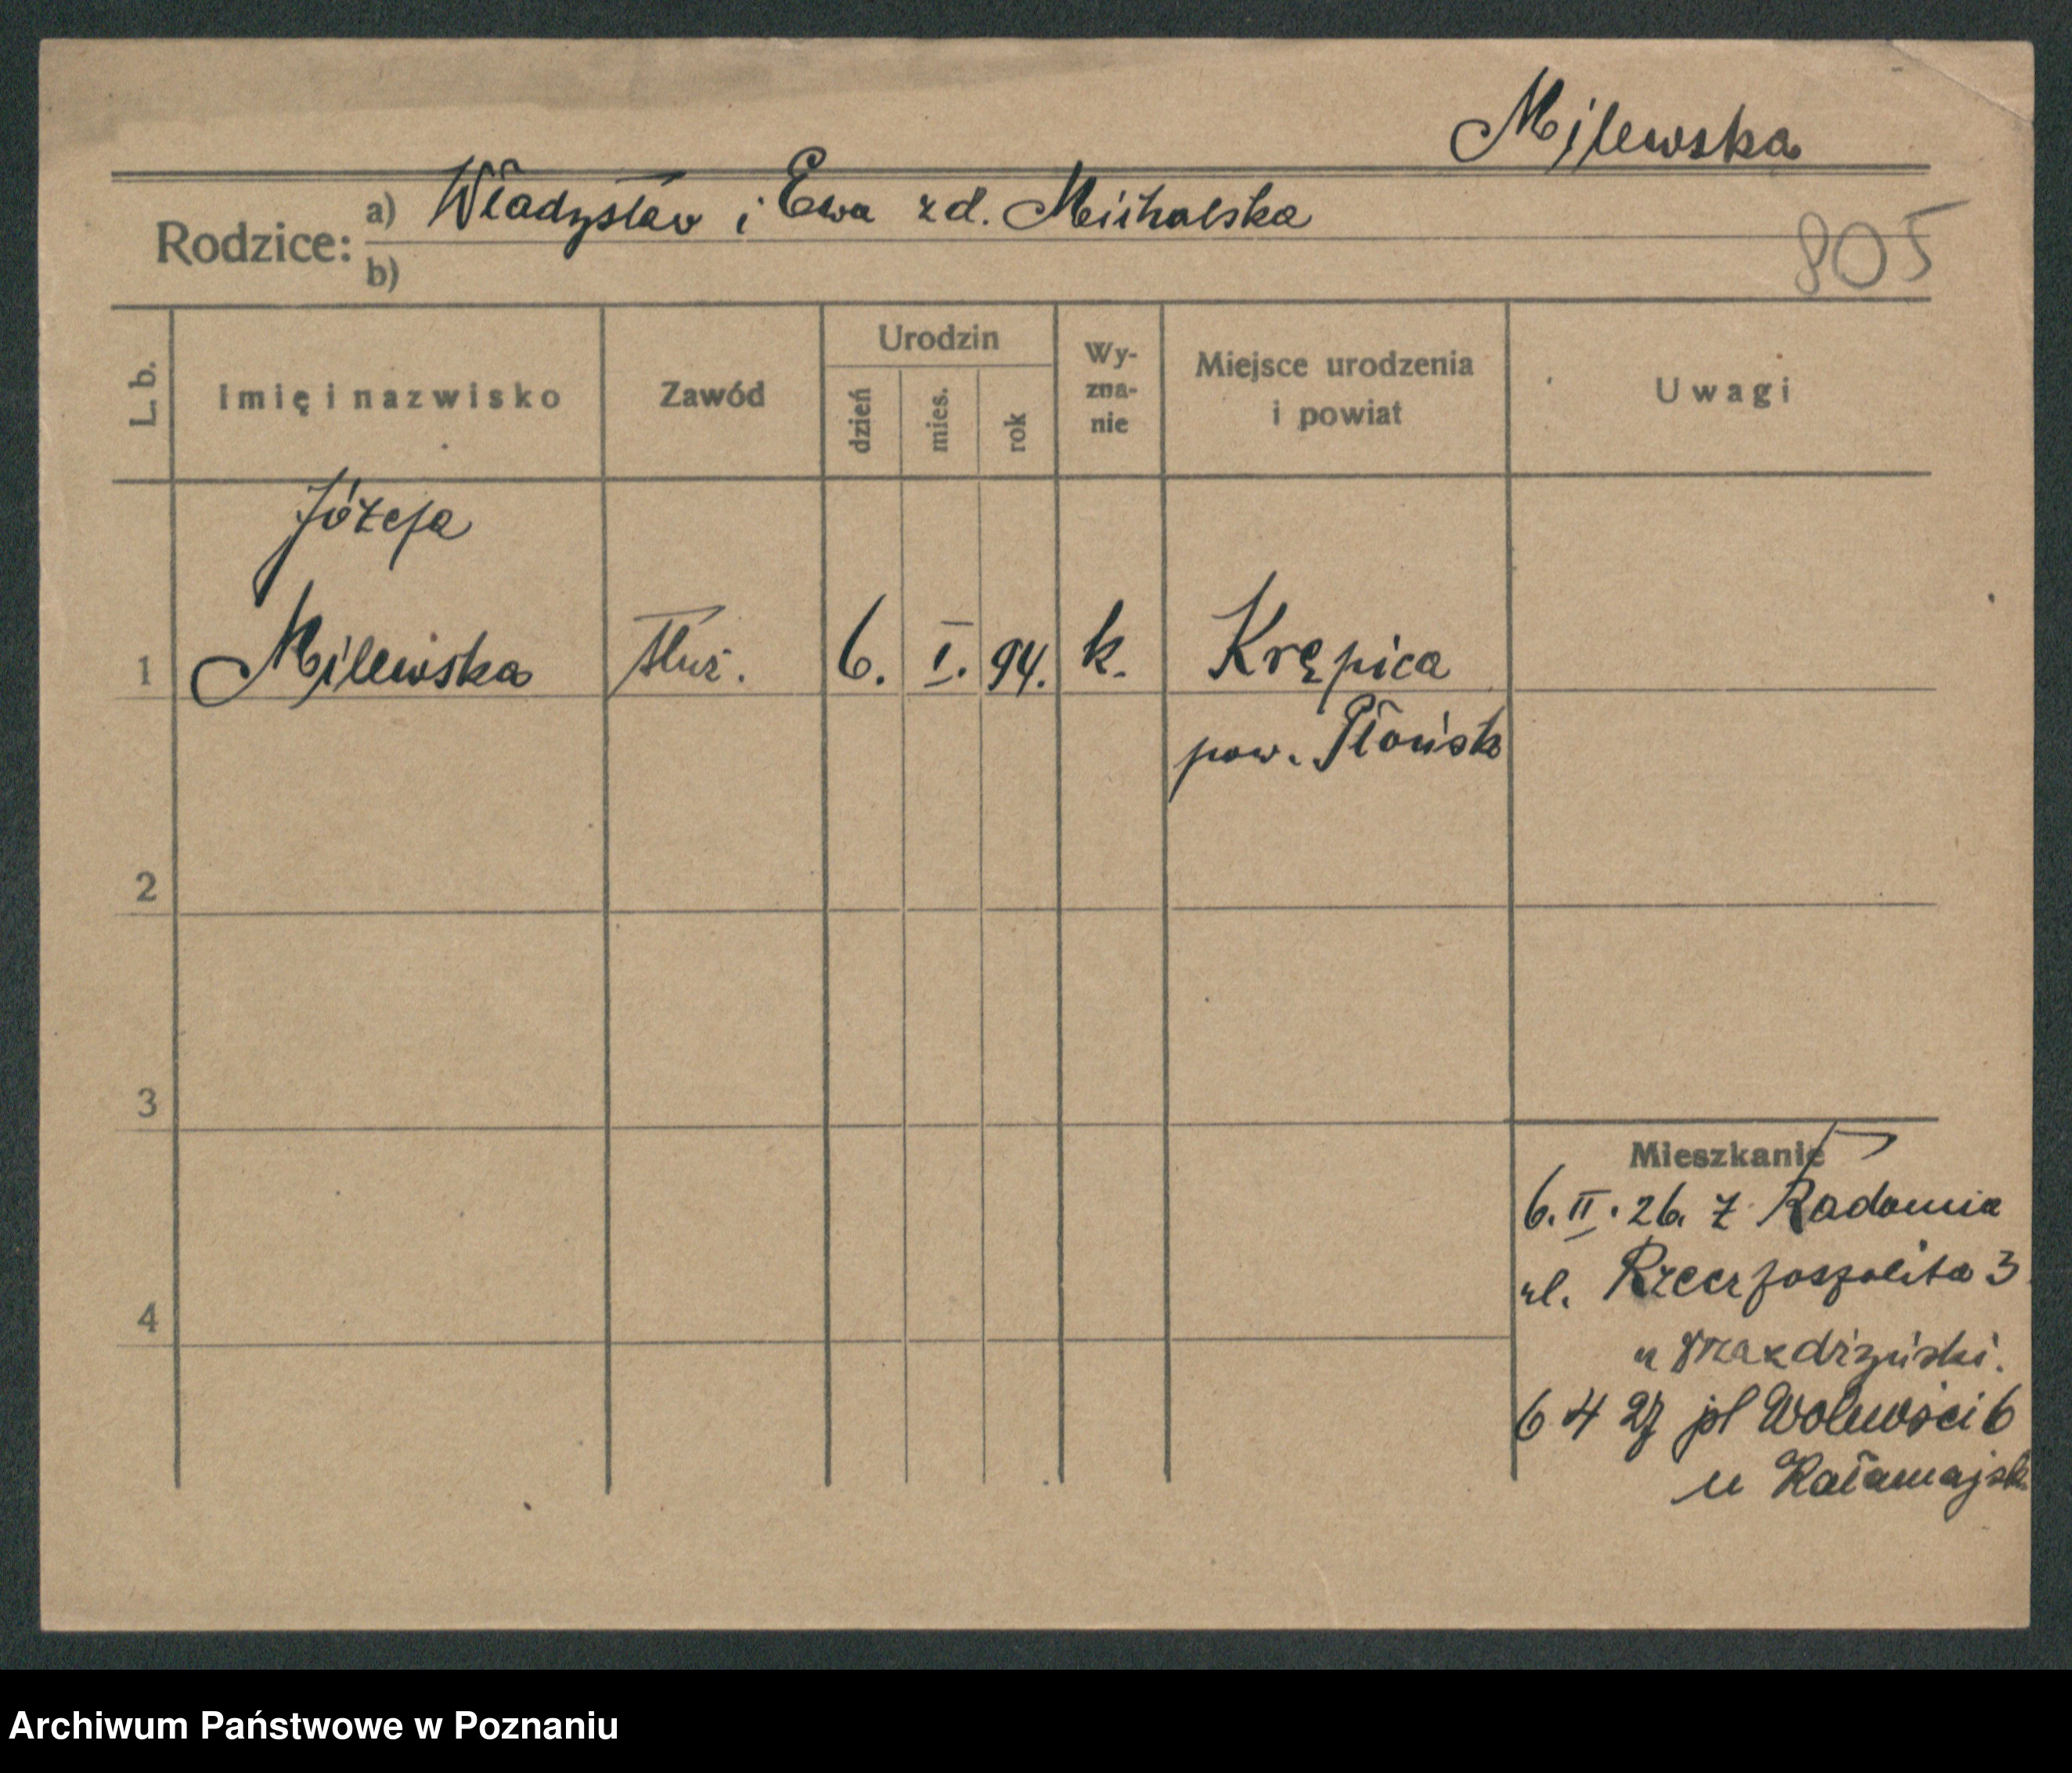 Milewska
Rodzice: a) Władysław i Ewa zd. Michalska
b)
805
L. b.
Imię i nazwisko
Zawód
Urodzin
dzień
mies.
rok
Wy-
zna-
nie
Miejsce urodzenia
i powiat
Uwagi
Józefa
1 Milewska służ. 6. I. 94. k. Krępica
pow. Płońsk
2
3
4
Mieszkanie
6. II. 26. z Radomia
ul. Rzeczpospolita 3
u
6 4 27 pl Wolności 6
u Kałamajsk
Archiwum Państwowe w Poznaniu